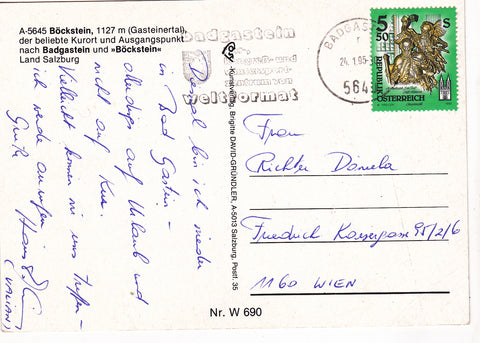 A-5645 Böckstein, 1127 m (Gasteinertal),
der beliebte Kurort und Ausgangspunkt
nach Badgastein und »Böckstein«
Land Salzburg
Diesmal bin ich wieder
in Bad Gastein –
allerdings auf Urlaub und
nicht auf Kur.
Vielleicht können wir uns treffen –
ich werde anrufen
Grüße Hans
Kunstverlag, Brigitte DAVID-GRÜNDLER, A-5003 Salzburg, Postf. 35
Badgastein
weltformat
BADGAS
24. 1. 95
564
5 S
50
REPUBLIK
ÖSTERREICH
Frau
Richter Daniela
Friedrich Kaisergasse 95/2/6
1160 WIEN
Nr. W 690